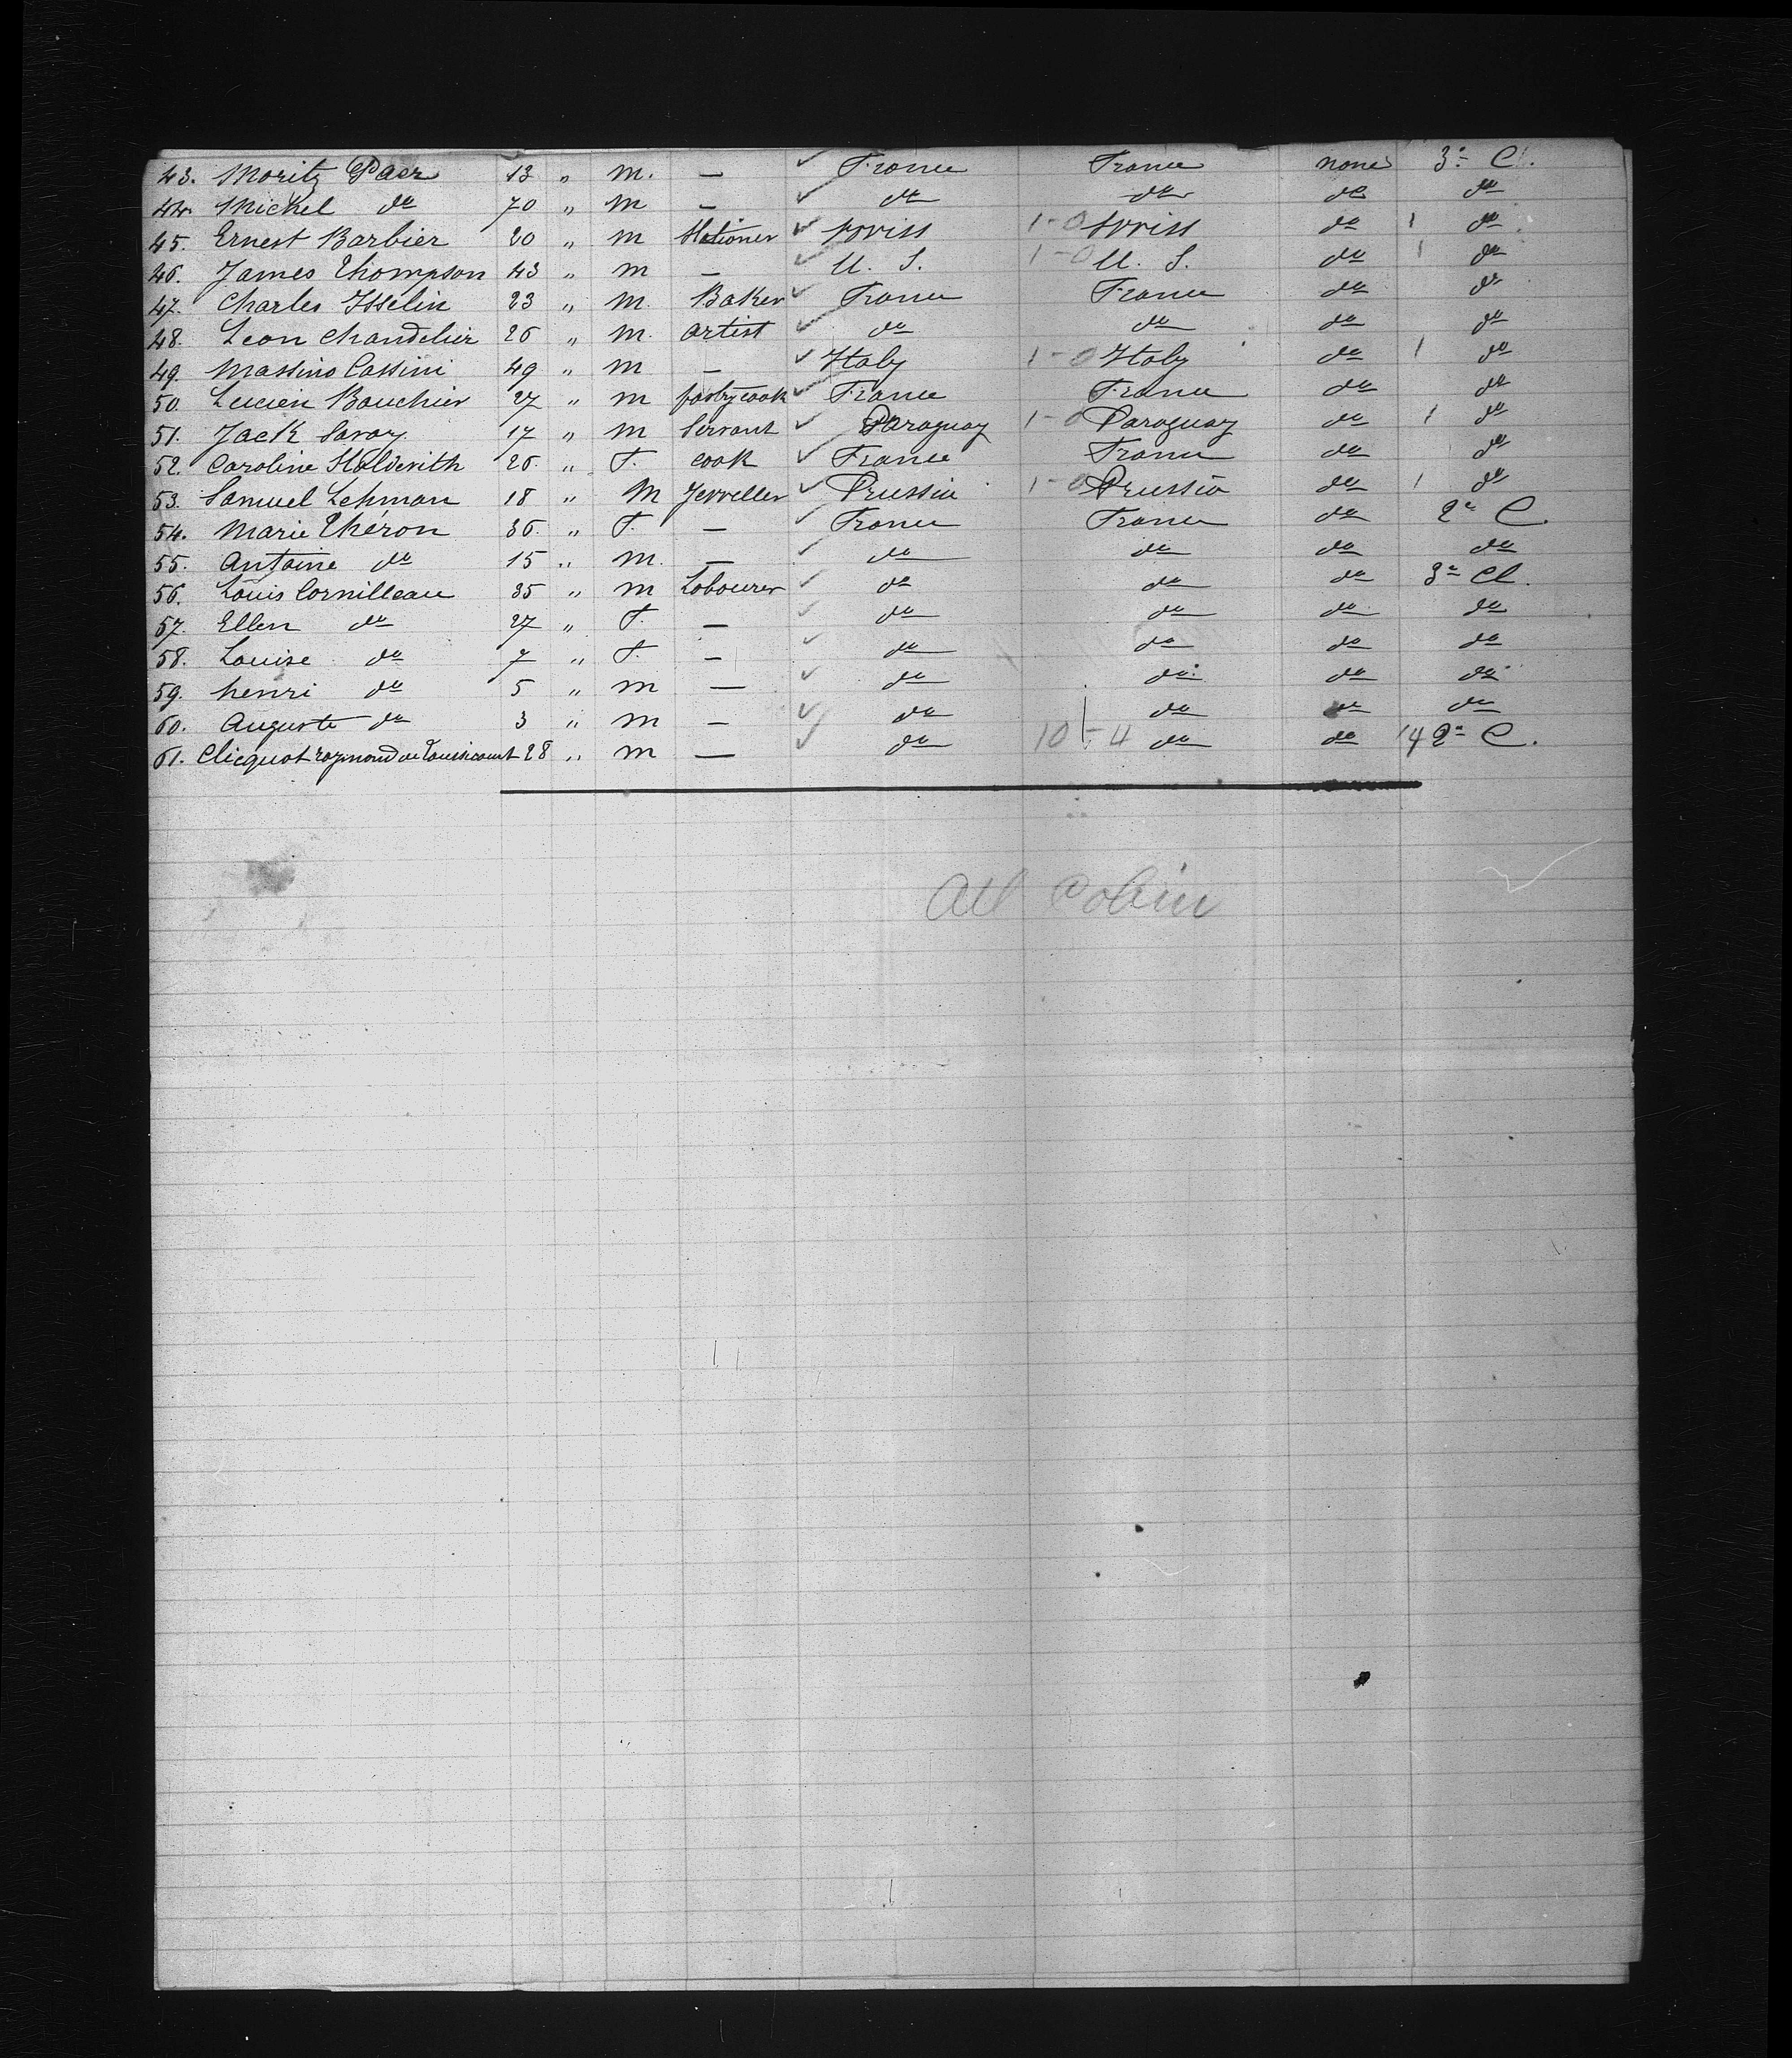 43. Moritz Paer 13 " m. — ✓ France France none 3e Cl.
44. Michel do 70 " m — ✓ do do do do
45. Ernest Barbier 20 " m Stationer ✓ Swiss 1-0 Swiss do 1 do
46. James Thompson 43 " m — ✓ U. S. 1-0 U. S. do 1 do
47. Charles Isselin 23 " m. Baker ✓ France France do do
48. Leon Chandelier 26 " m. artist ✓ do do do do
49. Massino Cassini 49 " m — ✓ Italy 1-0 Italy do 1 do
50. Lucien Bauchier 27 " m pastrycook ✓ France France do do
51. Jack Savay 17 " m Servant ✓ Paraguay 1-0 Paraguay do 1 do
52. Caroline Holderith 26. " F. cook ✓ France France do do
53. Samuel Lehman 18 " M Jeweller ✓ Prussia 1-0 Prussia do 1 do
54. Marie Théron 36. " F. — ✓ France France do 2e C.
55. Antoine do 15 " m. — ✓ do do do do
56. Louis Cornilleau 35 " m Labourer ✓ do do do 3e Cl.
57. Ellen do 27 " F. — ✓ do do do do
58. Louise do 7 " F. — ✓ do do do do
59. henri do 5 " m — ✓ do do do do
60. Auguste do 3 " m — ✓ do do do do
61. Clicquot raymond de Toussicourt 28 " m — ✓ do 10 - 4 do do 14 2e C.
All Cabin